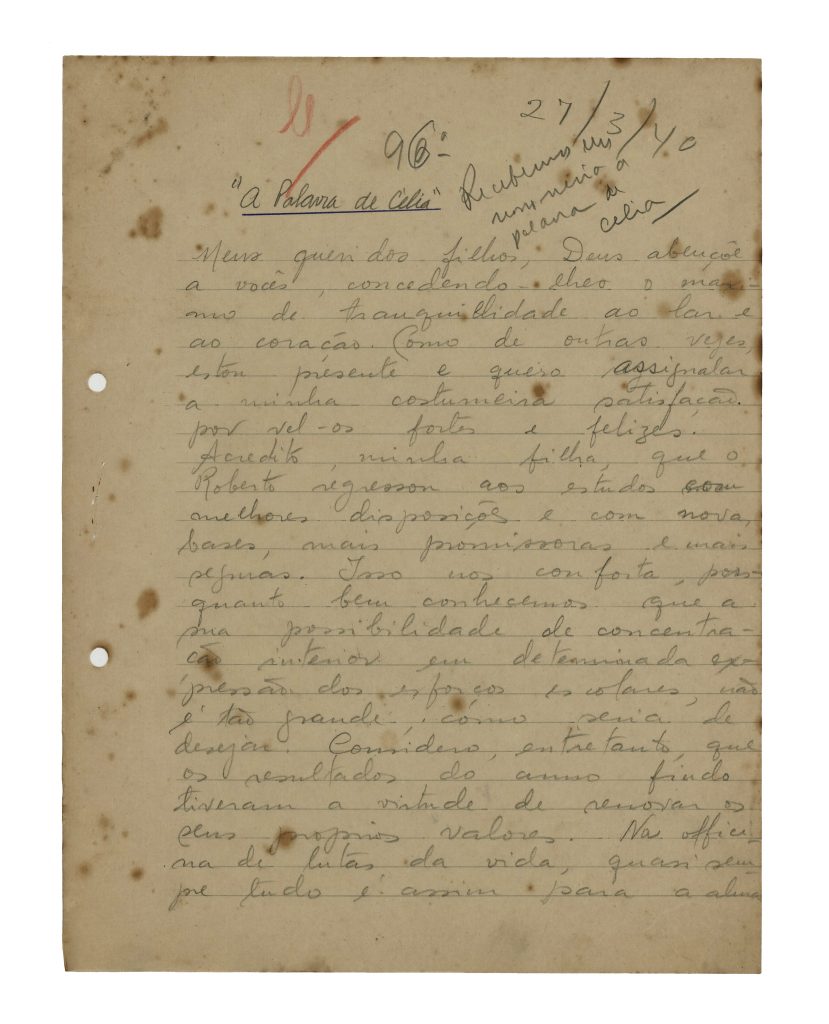 27/3/40
96ª-
"A Palavra de Célia"
Recebemos
a
palavra de
Celia
Meus queridos filhos, Deus abençôe
a vocês, concedendo-lhes o maxi-
mo de tranquillidade ao lar e
ao coração. Como de outras vezes,
estou presente e quero assignalar
a minha costumeira satisfação
por vel-os fortes e felizes.
Acredito, minha filha, que o
Roberto regressou aos estudos com
melhores disposições e com novas
bases, mais promissoras e mais
seguras. Isso nos conforta, por-
quanto bem conhecemos que a
sua possibilidade de concentra-
ção interior em determinada ex-
pressão dos esforços escolares, não
é tão grande, como seria de
desejar. Considero, entretanto, que
os resultados do anno findo
tiveram a virtude de renovar os
seus proprios valores. Na offici-
na de lutas da vida, quasi sem-
pre tudo é assim para a alma